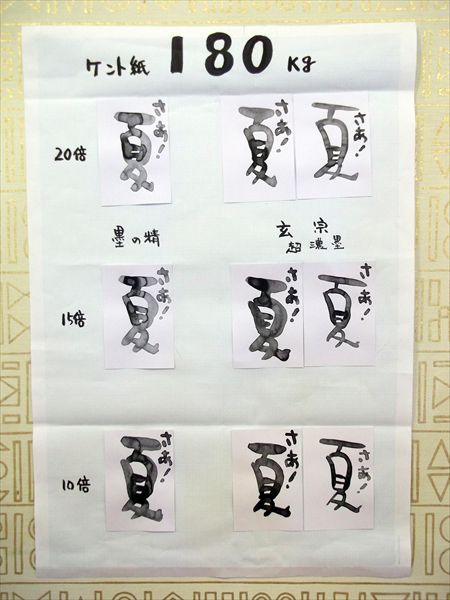 ケント紙 180 Kg
20倍
さあ!
夏
さあ!
夏
さあ!
夏
墨の精
玄宗
超濃墨
15倍
さあ!
夏
さあ!
夏
さあ!
夏
10倍
さあ!
夏
さあ!
夏
さあ!
夏